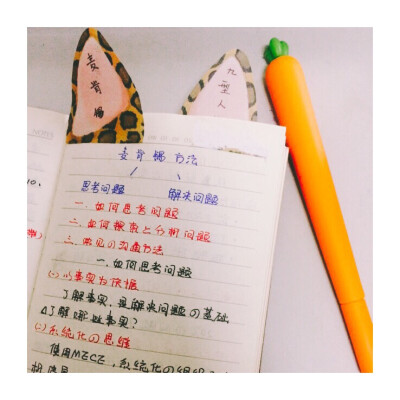 麦肯锡
九型人
麦肯锡方法
思考问题 解决问题
一.如何思考问题
二.如何搜集与分析问题
三.常见の沟通方法
一.如何思考问题
(一)以事实为依据
了解事实,是解决问题の基础
△了解哪些事实?
(二)系统化の思维
使用MZCZ,系统化の组织